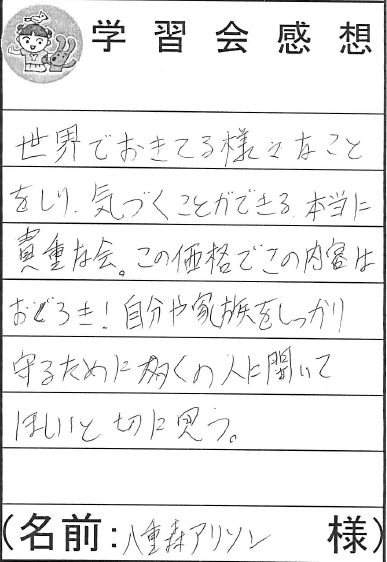 学習会感想
世界でおきてる様々なこと
をしり、気づくことができる、本当に
貴重な会。この価格でこの内容は
おどろき！自分や家族をしっかり
守るために多くの人に聞いて
ほしいと切に思う。
(名前:八重森アリソン 様)